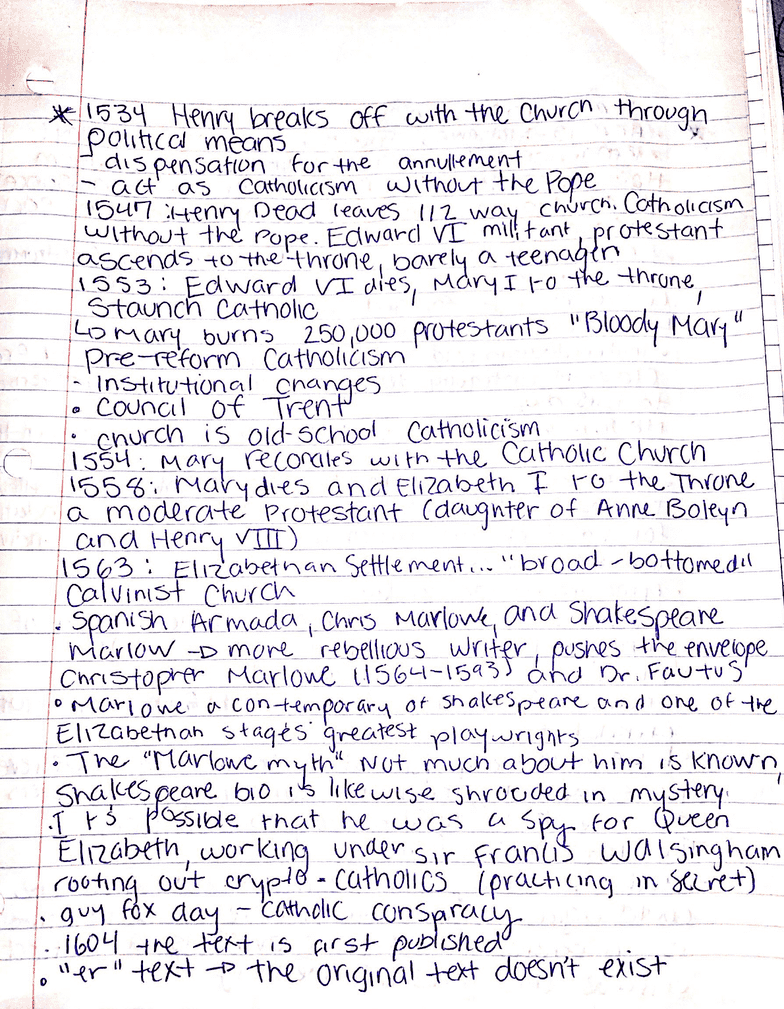 * 1534 Henry breaks off with the Church through
political means
- dispensation for the annullement
- act as Catholicism without the Pope
1547: Henry Dead leaves 1/2 way church. Catholicism
without the Pope. Edward VI militant, protestant
ascends to the throne, barely a teenager
1553: Edward VI dies, Mary I to the throne,
Staunch Catholic
↳ Mary burns 250,000 protestants "Bloody Mary"
Pre-reform Catholicism
- Institutional changes
• Council of Trent
• church is old-school Catholicism
1554: Mary reconciles with the Catholic Church
1558: Mary dies and Elizabeth I to the Throne
a moderate Protestant (daughter of Anne Boleyn
and Henry VIII)
1563: Elizabethan Settlement... "broad-bottomed"
Calvinist Church
• Spanish Armada, Chris Marlowe, and Shakespeare
Marlow → more rebellious writer, pushes the envelope
Christopher Marlowe (1564-1593) and Dr. Fautus
• Marlowe a contemporary of Shakespeare and one of the
Elizabethan stages greatest playwrights
• The "Marlowe myth" Not much about him is known,
Shakespeare bio is likewise shrouded in mystery.
• It s possible that he was a spy for Queen
Elizabeth, working under sir Francis Walsingham
rooting out crypto-catholics (practicing in secret)
• guy fox day - catholic conspracy
• 1604 the text is first published
• "er" text → the original text doesn't exist